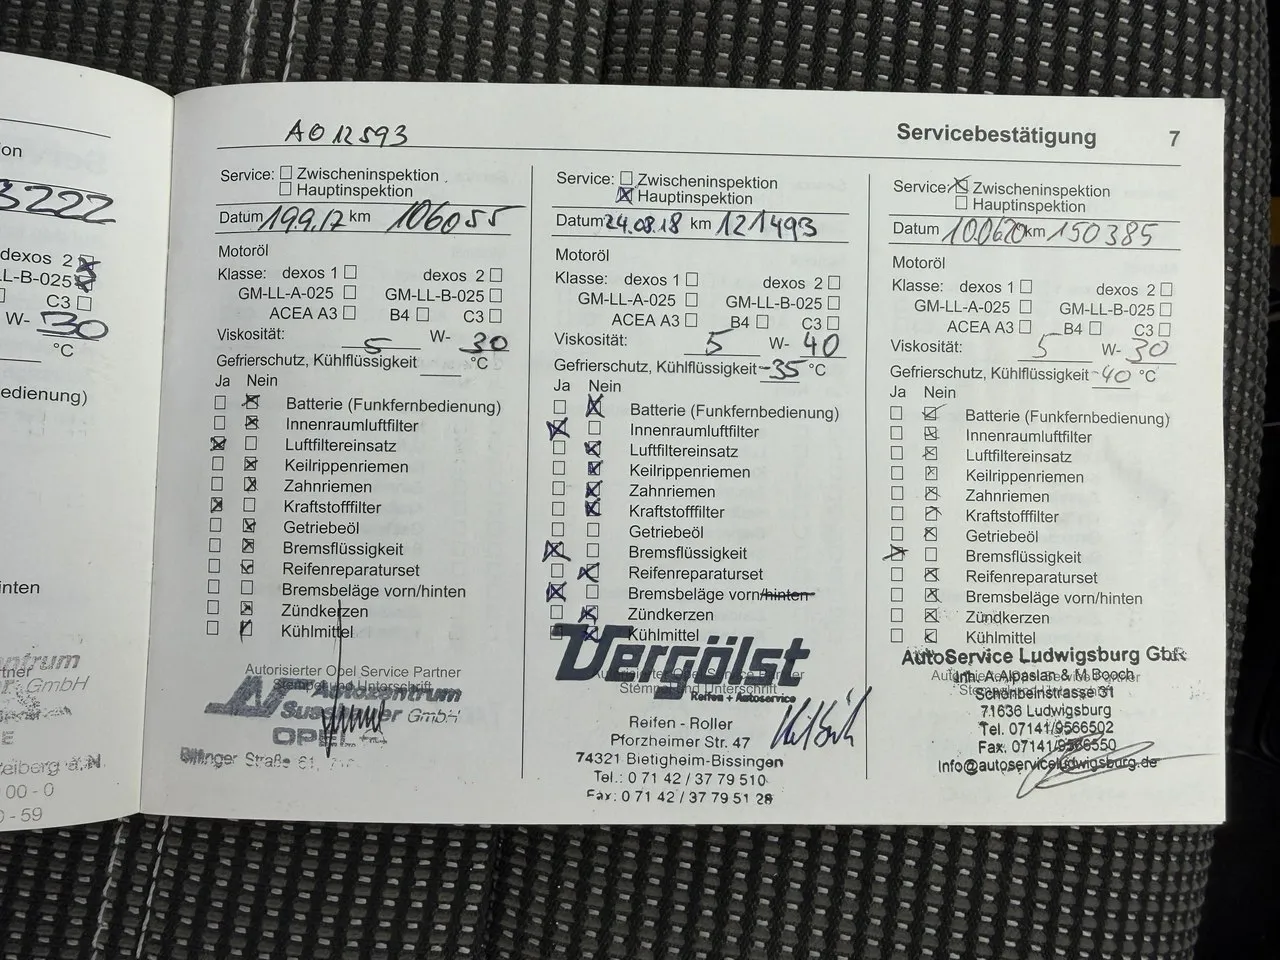 on
3222
dexos 2
LL-B-025
C3
W- 30
°C
edienung)
nten
entrum
GmbH
eiberg a. N.
00 - 0
0 - 59
AO 12593
Servicebestätigung 7
Service: Zwischeninspektion
Hauptinspektion
Datum 19.9.17 km 106055
Motoröl
Klasse: dexos 1 dexos 2
GM-LL-A-025 GM-LL-B-025
ACEA A3 B4 C3
Viskosität: 5 W- 30
Gefrierschutz, Kühlflüssigkeit °C
Ja Nein
Batterie (Funkfernbedienung)
Innenraumluftfilter
Luftfiltereinsatz
Keilrippenriemen
Zahnriemen
Kraftstofffilter
Getriebeöl
Bremsflüssigkeit
Reifenreparaturset
Bremsbeläge vorn/hinten
Zündkerzen
Kühlmittel
Autorisierter Opel Service Partner
Stempel und Unterschrift
Autozentrum
GmbH
OPEL
Straße 61
Service: Zwischeninspektion
Hauptinspektion
Datum 24.08.18 km 121493
Motoröl
Klasse: dexos 1 dexos 2
GM-LL-A-025 GM-LL-B-025
ACEA A3 B4 C3
Viskosität: 5 W- 40
Gefrierschutz, Kühlflüssigkeit -35 °C
Ja Nein
Batterie (Funkfernbedienung)
Innenraumluftfilter
Luftfiltereinsatz
Keilrippenriemen
Zahnriemen
Kraftstofffilter
Getriebeöl
Bremsflüssigkeit
Reifenreparaturset
Bremsbeläge vorn/hinten
Zündkerzen
Kühlmittel
Vergölst
Reifen + Autoservice
Stempel und Unterschrift
Reifen - Roller
Pforzheimer Str. 47
74321 Bietigheim-Bissingen
Tel.: 0 71 42 / 37 79 510
Fax: 0 71 42 / 37 79 51 28
Service: Zwischeninspektion
Hauptinspektion
Datum 10.06.20 km 150385
Motoröl
Klasse: dexos 1 dexos 2
GM-LL-A-025 GM-LL-B-025
ACEA A3 B4 C3
Viskosität: 5 W- 30
Gefrierschutz, Kühlflüssigkeit -40 °C
Ja Nein
Batterie (Funkfernbedienung)
Innenraumluftfilter
Luftfiltereinsatz
Keilrippenriemen
Zahnriemen
Kraftstofffilter
Getriebeöl
Bremsflüssigkeit
Reifenreparaturset
Bremsbeläge vorn/hinten
Zündkerzen
Kühlmittel
AutoService Ludwigsburg GbR
Inh. A.Alpaslan & M.Booch
Schönbeinstrasse 31
71636 Ludwigsburg
Tel. 07141/9566502
Fax. 07141/9566550
Info@autoserviceludwigsburg.de